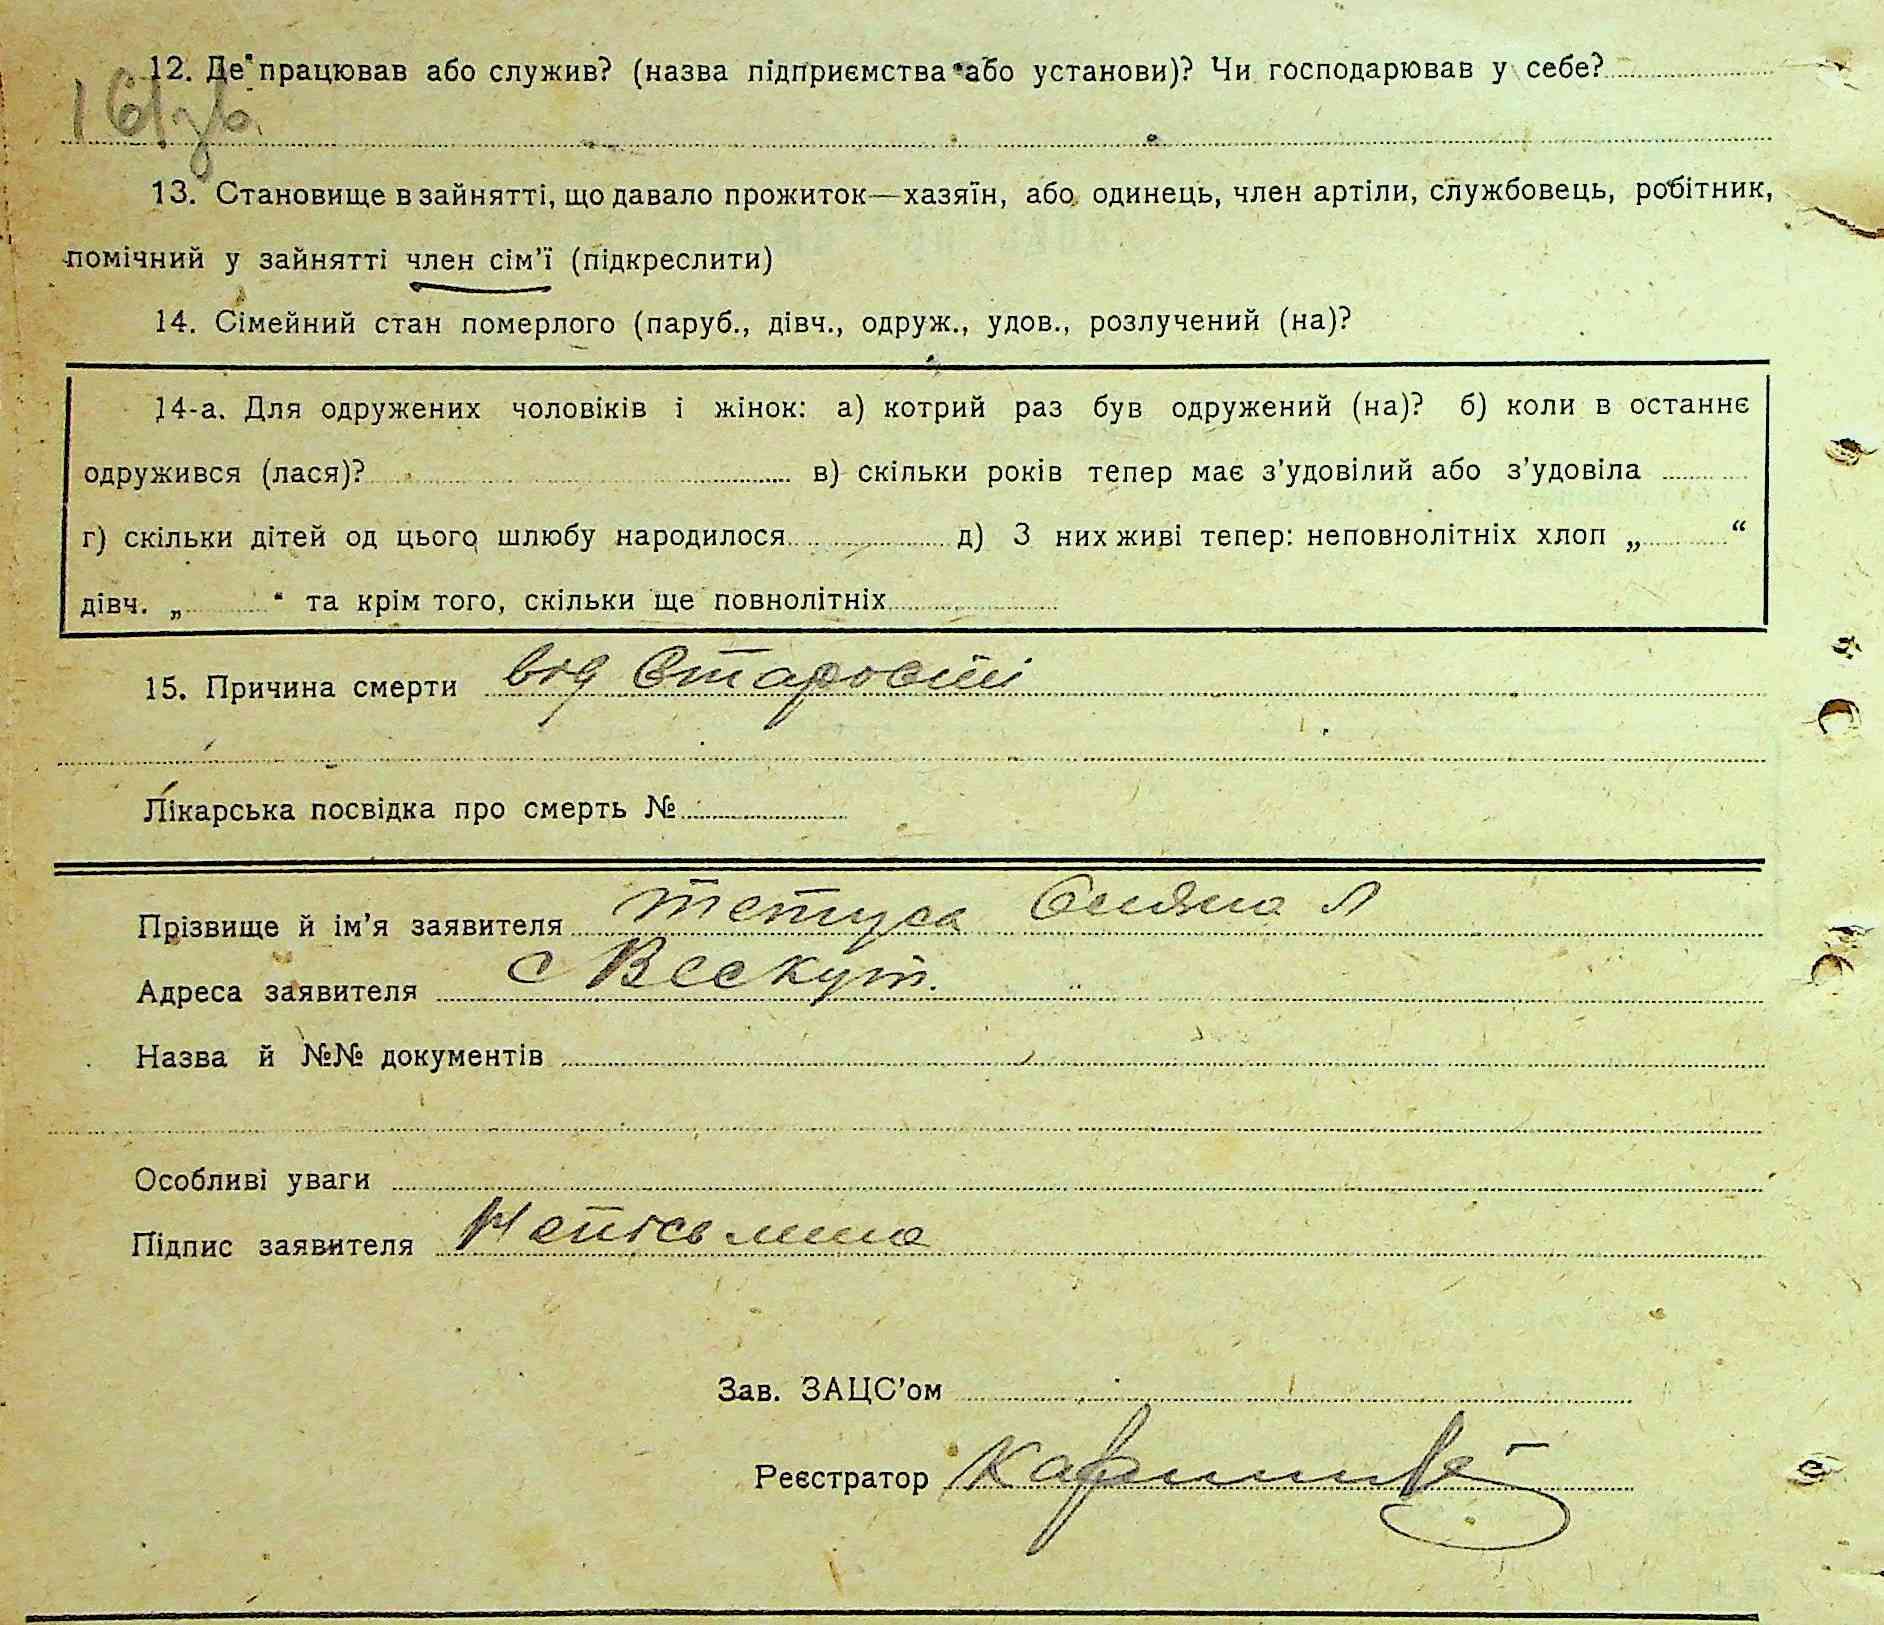 12. Де працював або служив? (назва підприємства або установи)? Чи господарював у себе?
13. Становище в зайнятті, що давало прожиток—хазяїн, або одинець, член артіли, службовець, робітник,
помічний у зайнятті член сім'ї (підкреслити)
14. Сімейний стан померлого (паруб., дівч., одруж., удов., розлучений (на)?
14-а. Для одружених чоловіків і жінок: а) котрий раз був одружений (на)? б) коли в останнє
одружився (лася)? в) скільки років тепер має з'удовілий або з'удовіла
г) скільки дітей од цього шлюбу народилося д) З них живі тепер: неповнолітніх хлоп „ “
дівч. „ “ та крім того, скільки ще повнолітніх
15. Причина смерти від Старости
Лікарська посвідка про смерть №
Прізвище й ім'я заявителя
Адреса заявителя с
Назва й №№ документів
Особливі уваги
Підпис заявителя Неписьмена
Зав. ЗАЦС'ом
Реєстратор